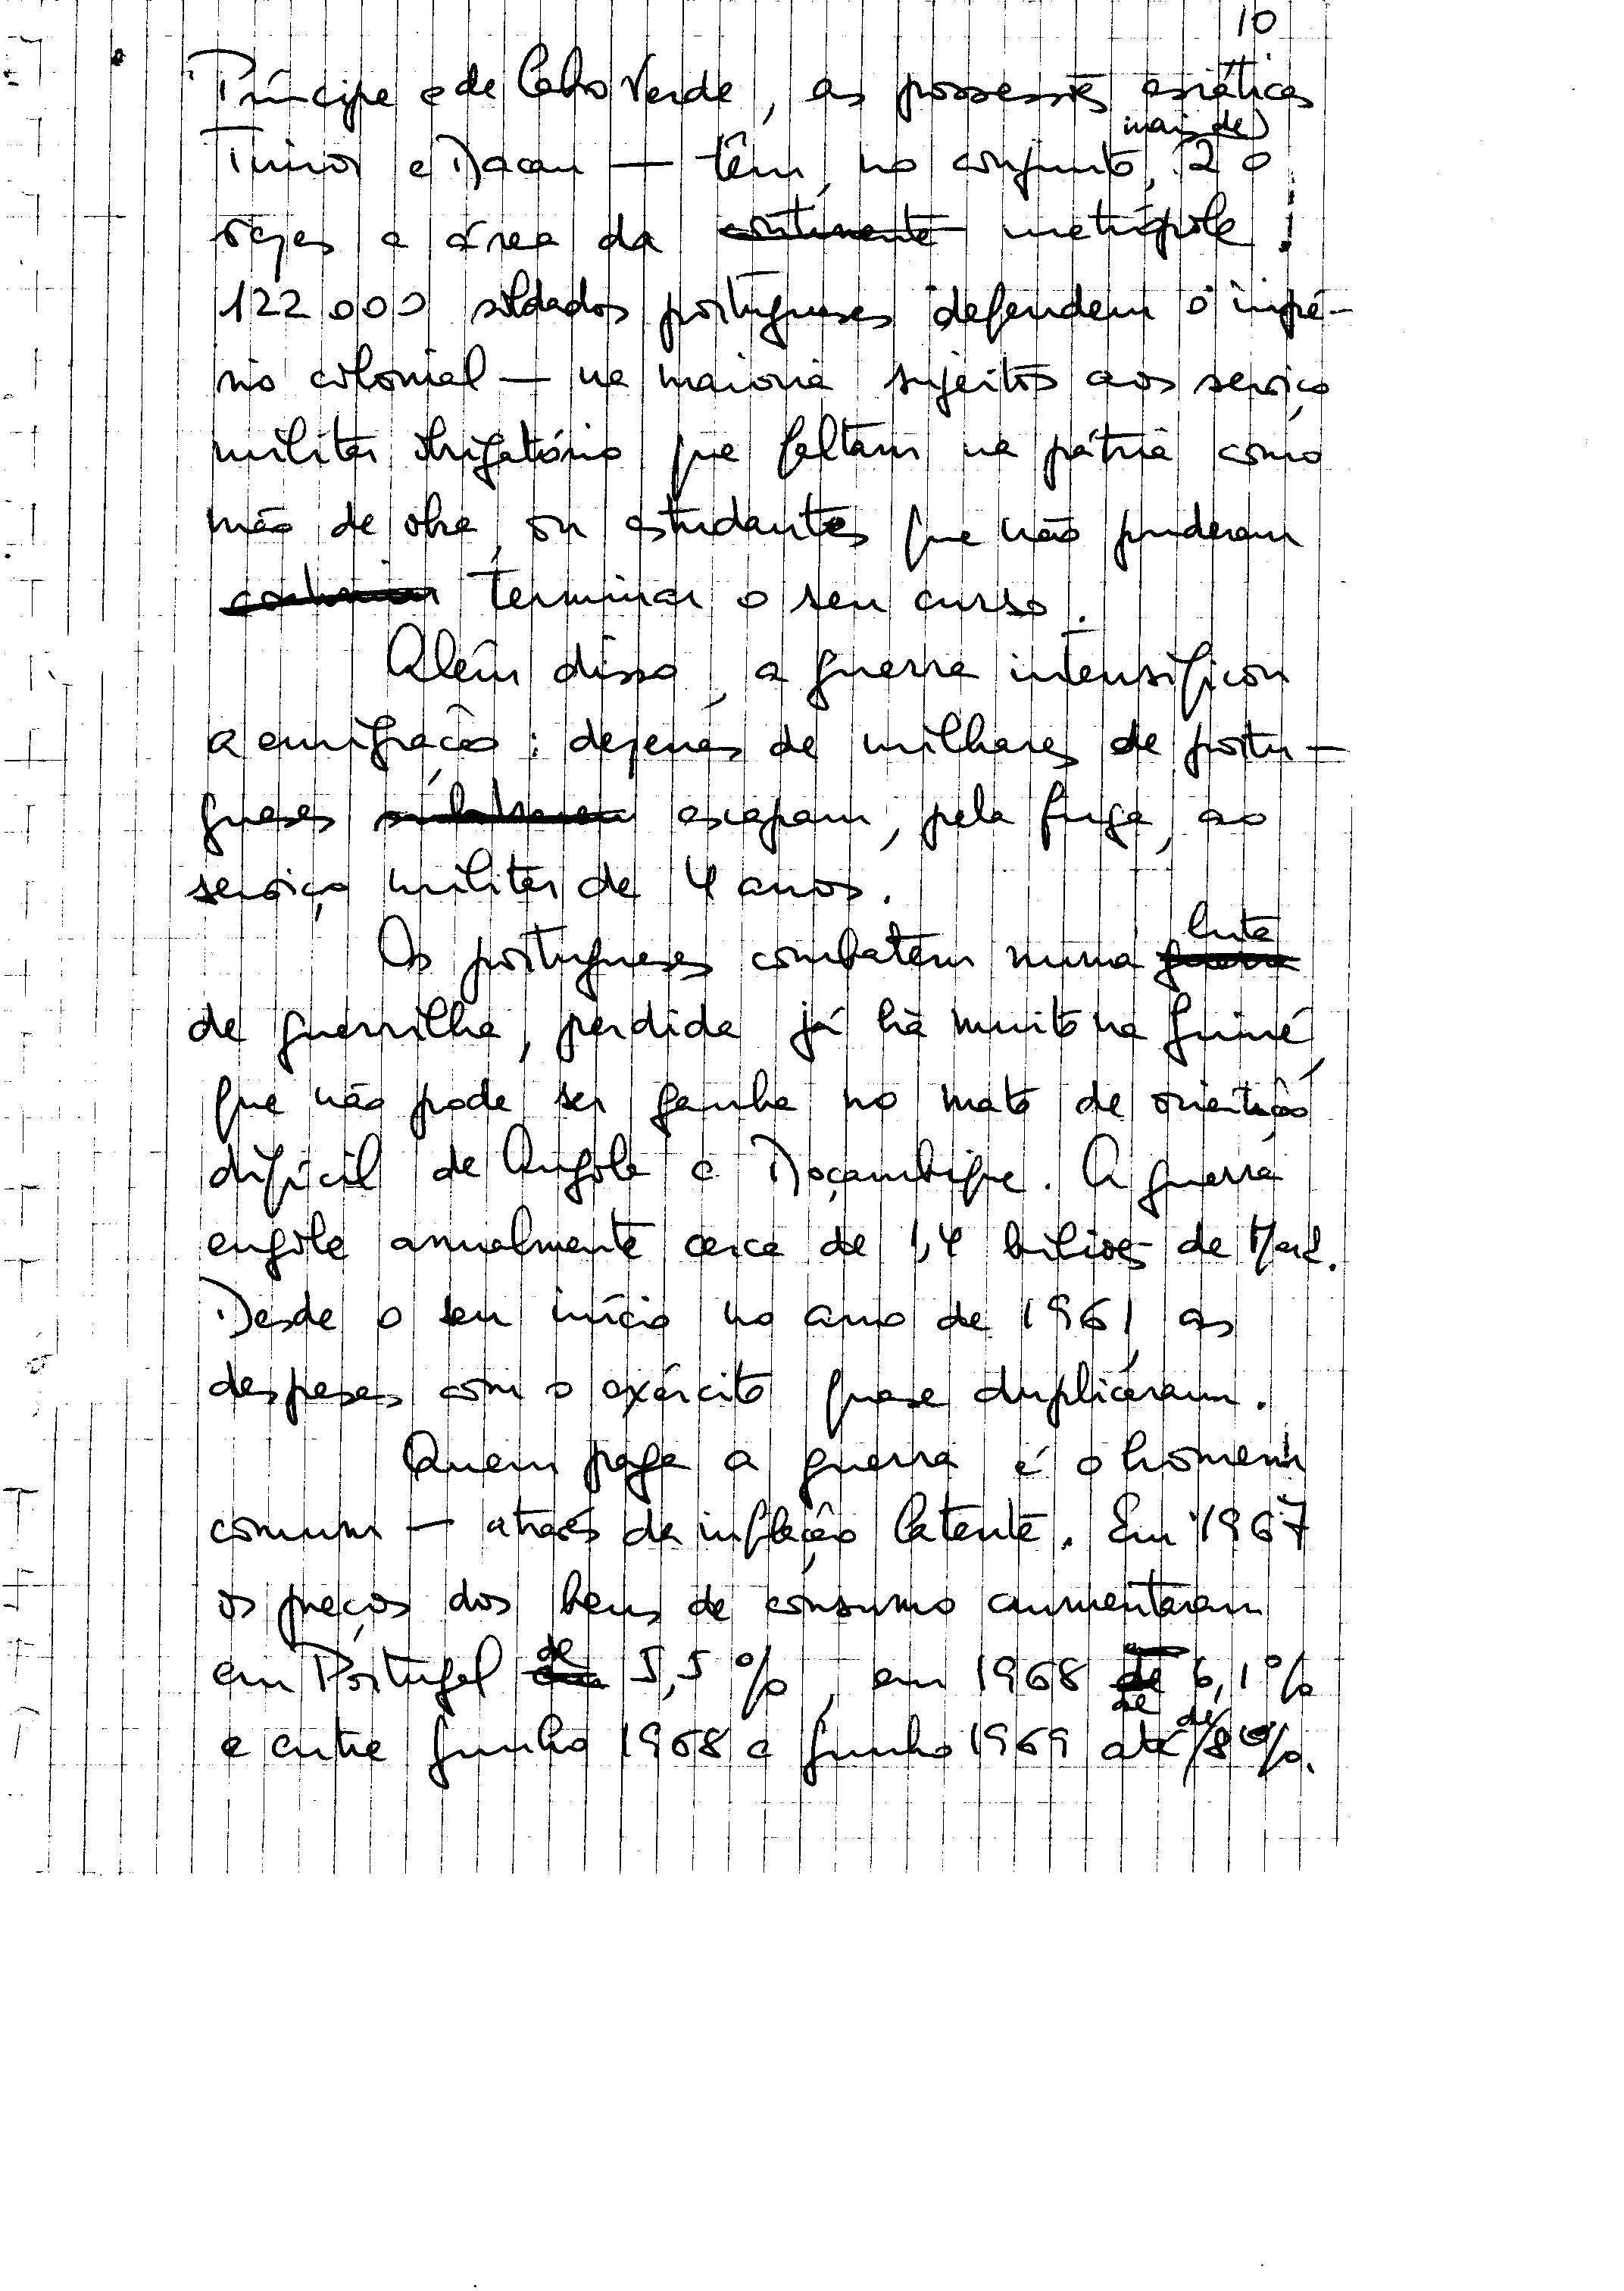 10
Príncipe e de Cabo Verde, as possessões asiáticas
mais de
Timor e Macau — têm, no conjunto, 20
vezes a área da continente metrópole.
122 000 soldados portugueses defendem o impé-
rio colonial — na maioria sujeitos aos serviço
militar obrigatório que faltam na pátria como
mão de obra, ou estudantes que não puderam
terminar o seu curso.
Além disso, a guerra intensificou
a emigração: dezenas de milhares de portu-
gueses escapam, pela fuga, ao
serviço militar de 4 anos.
luta
Os portugueses combatem numa guerra
de guerrilha, perdida já há muito na Guiné,
que não pode ser ganha no mato de orientação
difícil de Angola e Moçambique. A guerra
engole anualmente cerca de 1,4 biliões de Mark.
Desde o seu início no ano de 1961, as
despesas com o exército quase duplicaram.
Quem paga a guerra é o homem
comum — através da inflação latente. Em 1967
os preços dos bens de consumo aumentaram
de
em Portugal 5,5 %, em 1968 de 6,1 %
de de
e entre Junho 1968 e Junho 1969 até 8 %.